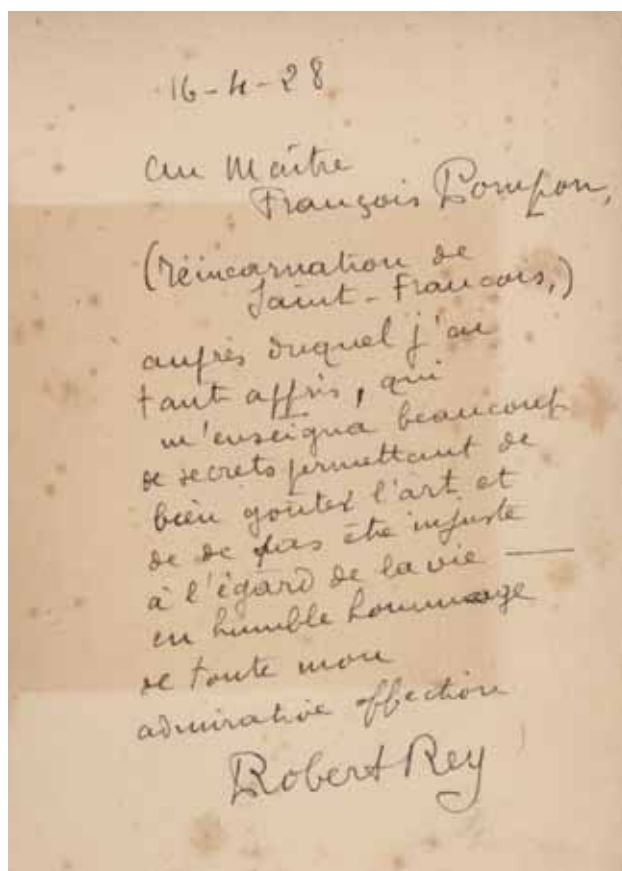 16-4-28
Au Maître
François Pompon,
(réincarnation de
Saint-Francois,)
auprès duquel j'ai
tant appris, qui
m'enseigna beaucoup
de secrets permettant de
bien goûter l'art et
de de pas être injuste
à l'égard de la vie —
en humble hommage
de toute mon
admirative affection
Robert Rey